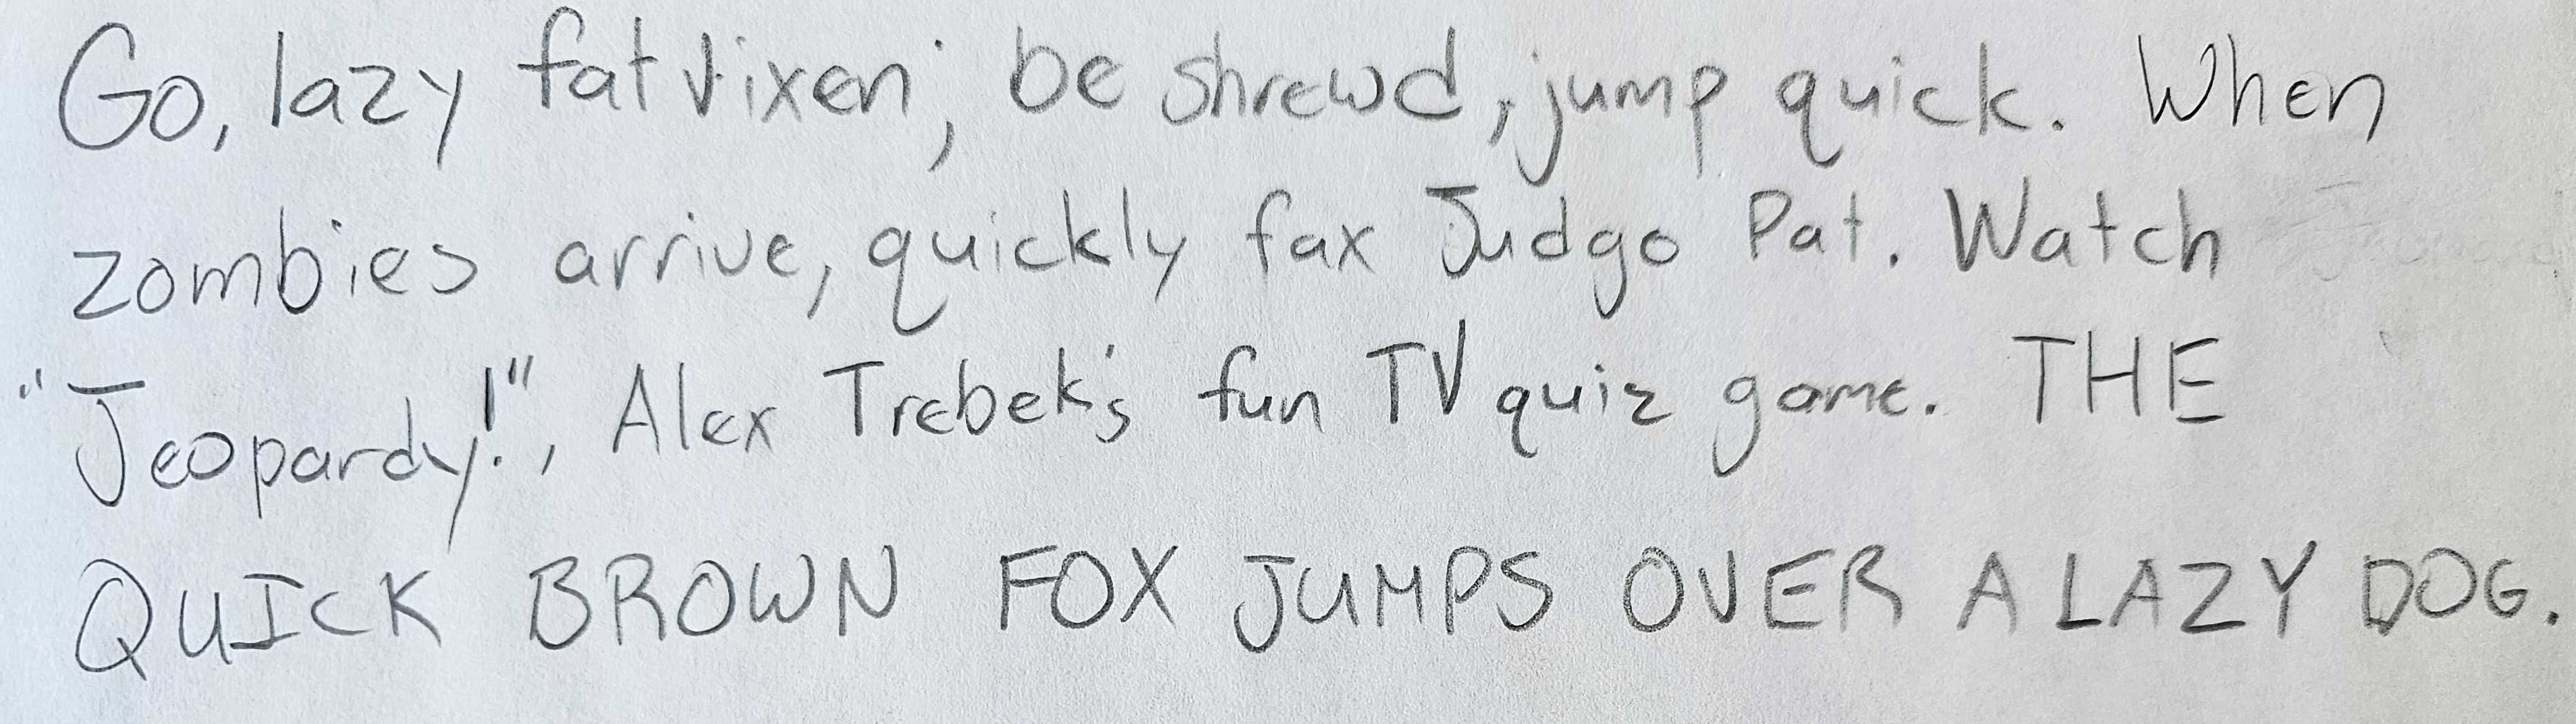 Go, lazy fat vixen; be shrewd, jump quick. When
zombies arrive, quickly fax Judgo Pat. Watch
"Jeopardy!", Alex Trebek's fun TV quiz game. THE
QUICK BROWN FOX JUMPS OVER A LAZY DOG.